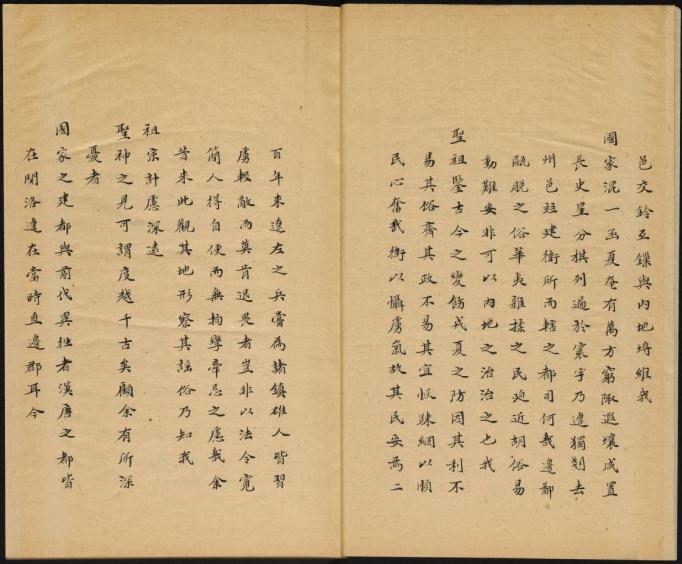 邑交錯互鏁與內地埒維我
國家混一函夏奄有萬方窮陬遐壤咸置
長史星分棋列遍於寰宇乃遼獨剗去
州邑竝建衛所而轄之都司何哉邊鄙
甌脫之俗華夷雜揉之民迫近胡俗易
動難安非可以內地之治治之也我
聖祖鑒古今之變飭戎夏之防因其利不
易其俗齊其政不易其宜恢踈網以順
民心奮武衛以懾虜氣故其民安焉二
百年來遼左之兵嘗為諸鎮雄人皆習
虜輕敵而莫肯退畏者豈非以法令寬
簡人得自便而無拘攣牽忌之慮哉余
昔來此觀其地形察其謠俗乃知我
祖宗計慮深遠
聖神之見可謂度越千古矣顧余有所深
憂者
國家之建都與前代異独者漢唐之都皆
在關洛遼在當時直邊郡耳今